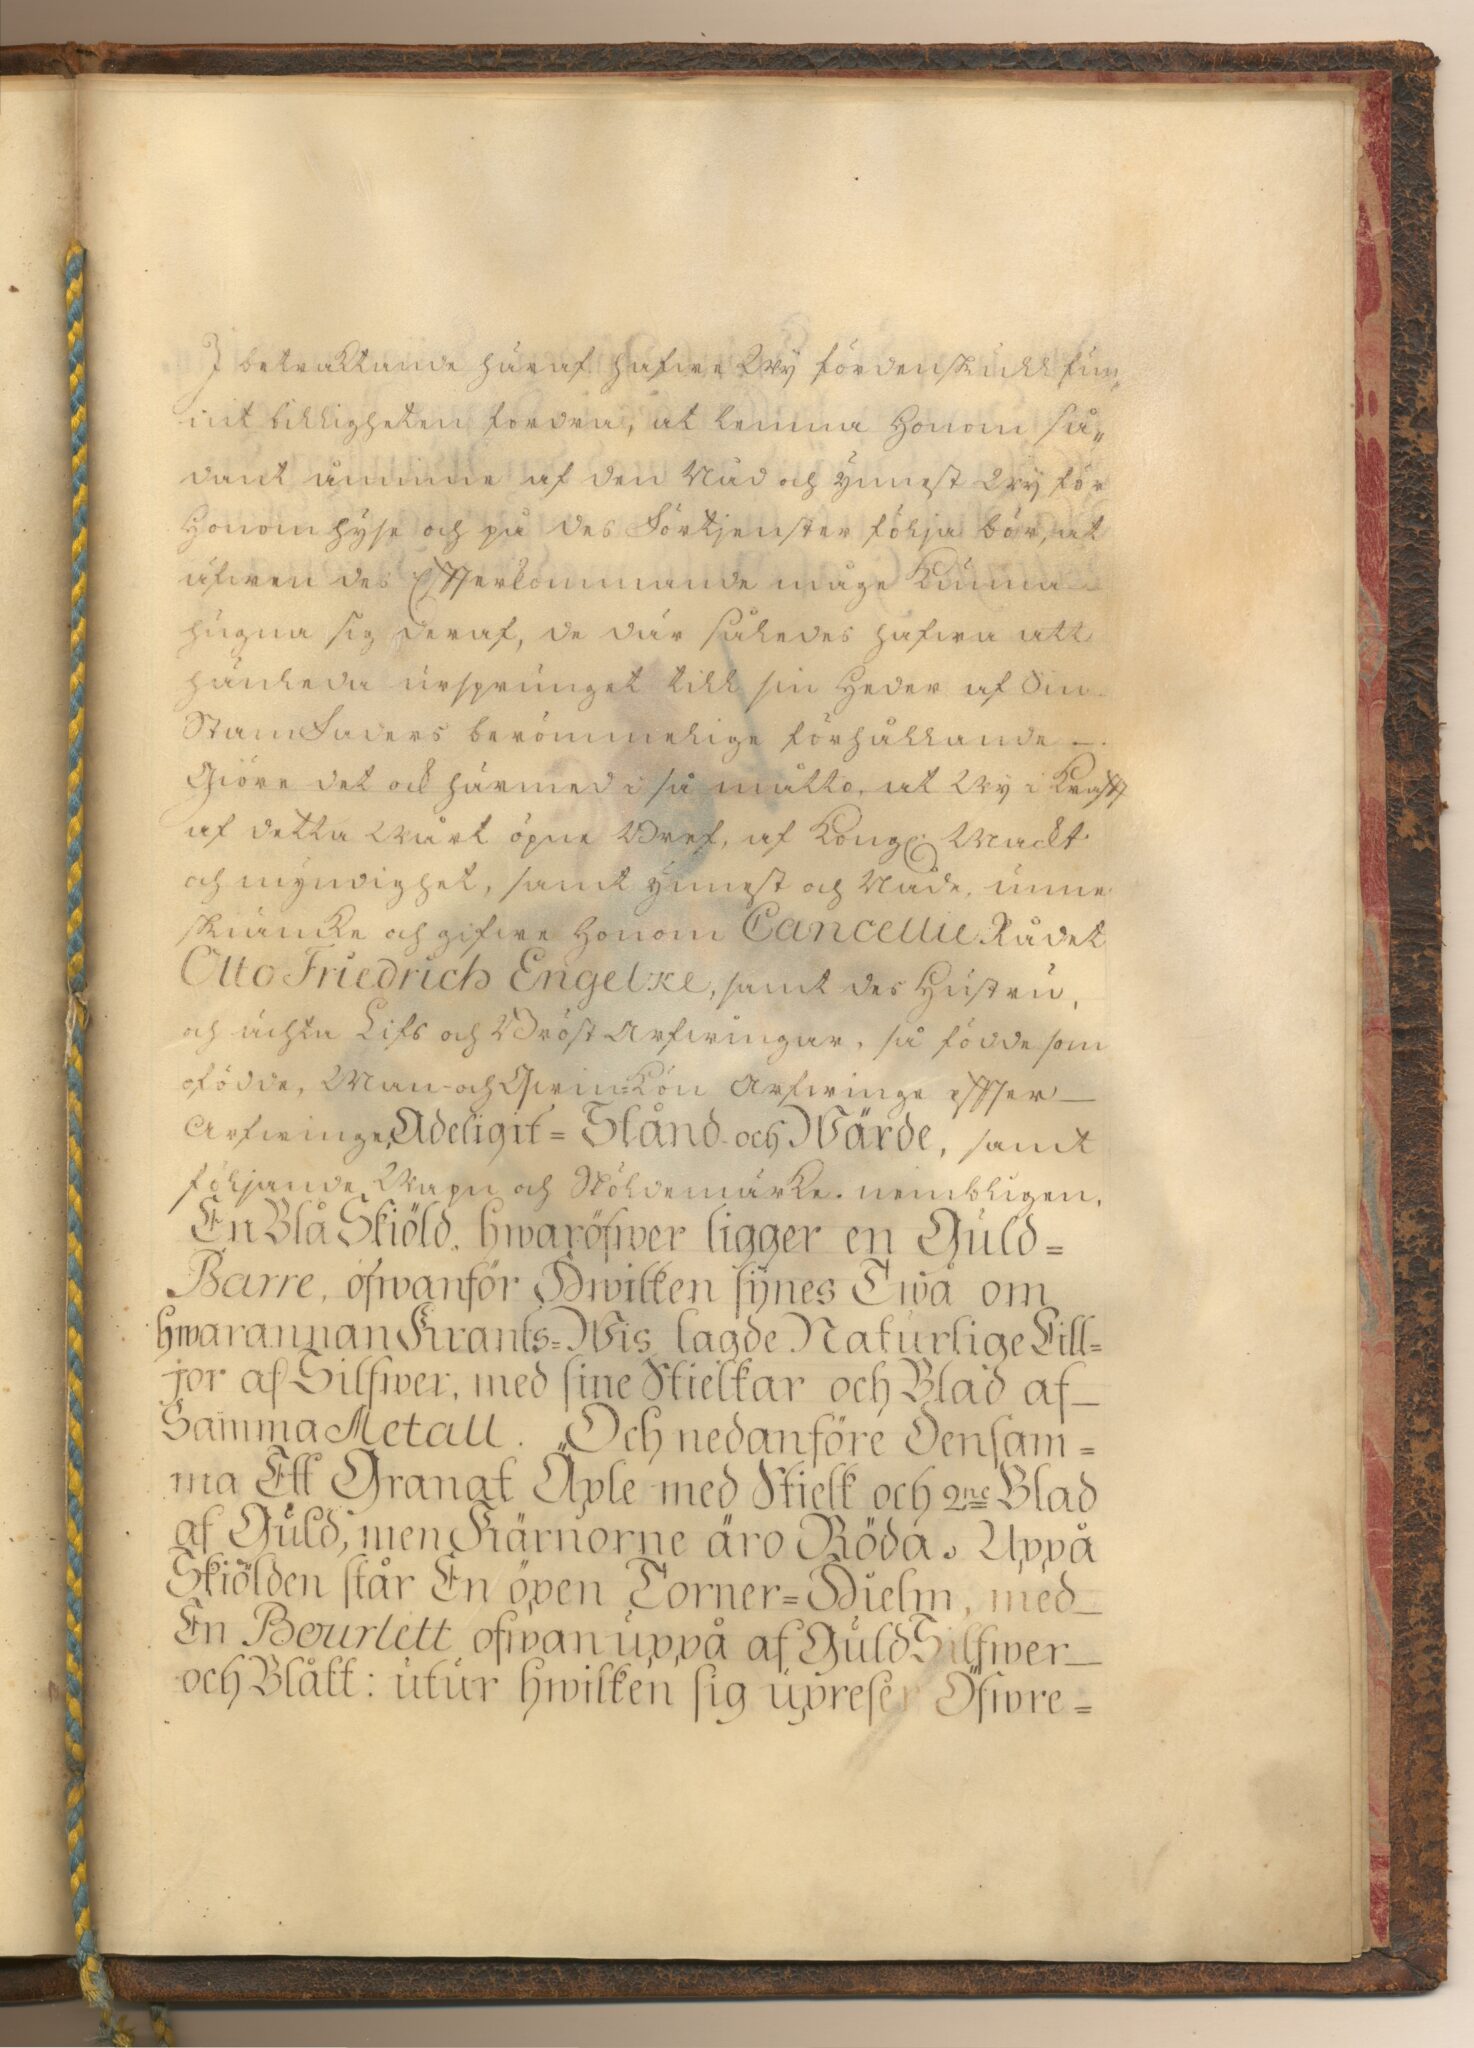 I betracktande häraf hafwe Wy fördenskull fun„
nit billigheten fordra, at lemna Honom så„
dant åminne af den Nåd och ynnest Wy för
Honom hyse och på des Förtjenster följa bör, at
äfwen des Effterkommande måge kunna
hugna sig deraf, de där således hafwa att
hänleda ursprunget till sin Heder af Sin
StamFaders berömmelige förhållande —.
Giöre det ock härmed i så måtto, at Wy i Krafft
af detta Wårt öpne Bref, af Kongl: Mackt
och myndighet, samt ynnest och Nåde, unne
skiäncke och gifwe Honom Cancellie Rådet
Otto Friedrich Engelke, samt des Hustru,
och ächta Lifs och Bröst Arfwingar, så födde som
ofödde, Man- och Qwin=Kön Arfwinge effter —
Arfwinge, Adeligit = Stånd och Wärde, samt
följande Wapn och Sköldemärke. nembligen,
En Blå Skiöld, hwaröfwer ligger en Guld=
Barre, ofwanför Hwilken synes Twå om
hwarannan Krants=Wis lagde Naturlige Lill=
jor af Silfwer, med sine Stielkar och Blad af —
Samma Metall. Och nedanföre Densam=
ma Ett Granat Äple med Stielk och 2ne Blad
af Guld, men Kärnorne äro Röda. Uppå
Skiölden står En öpen Torner=Hielm, med —
En Bourlett ofwanuppå af Guld Silfwer —
och Blått: utur hwilken sig upreser Öfwre=